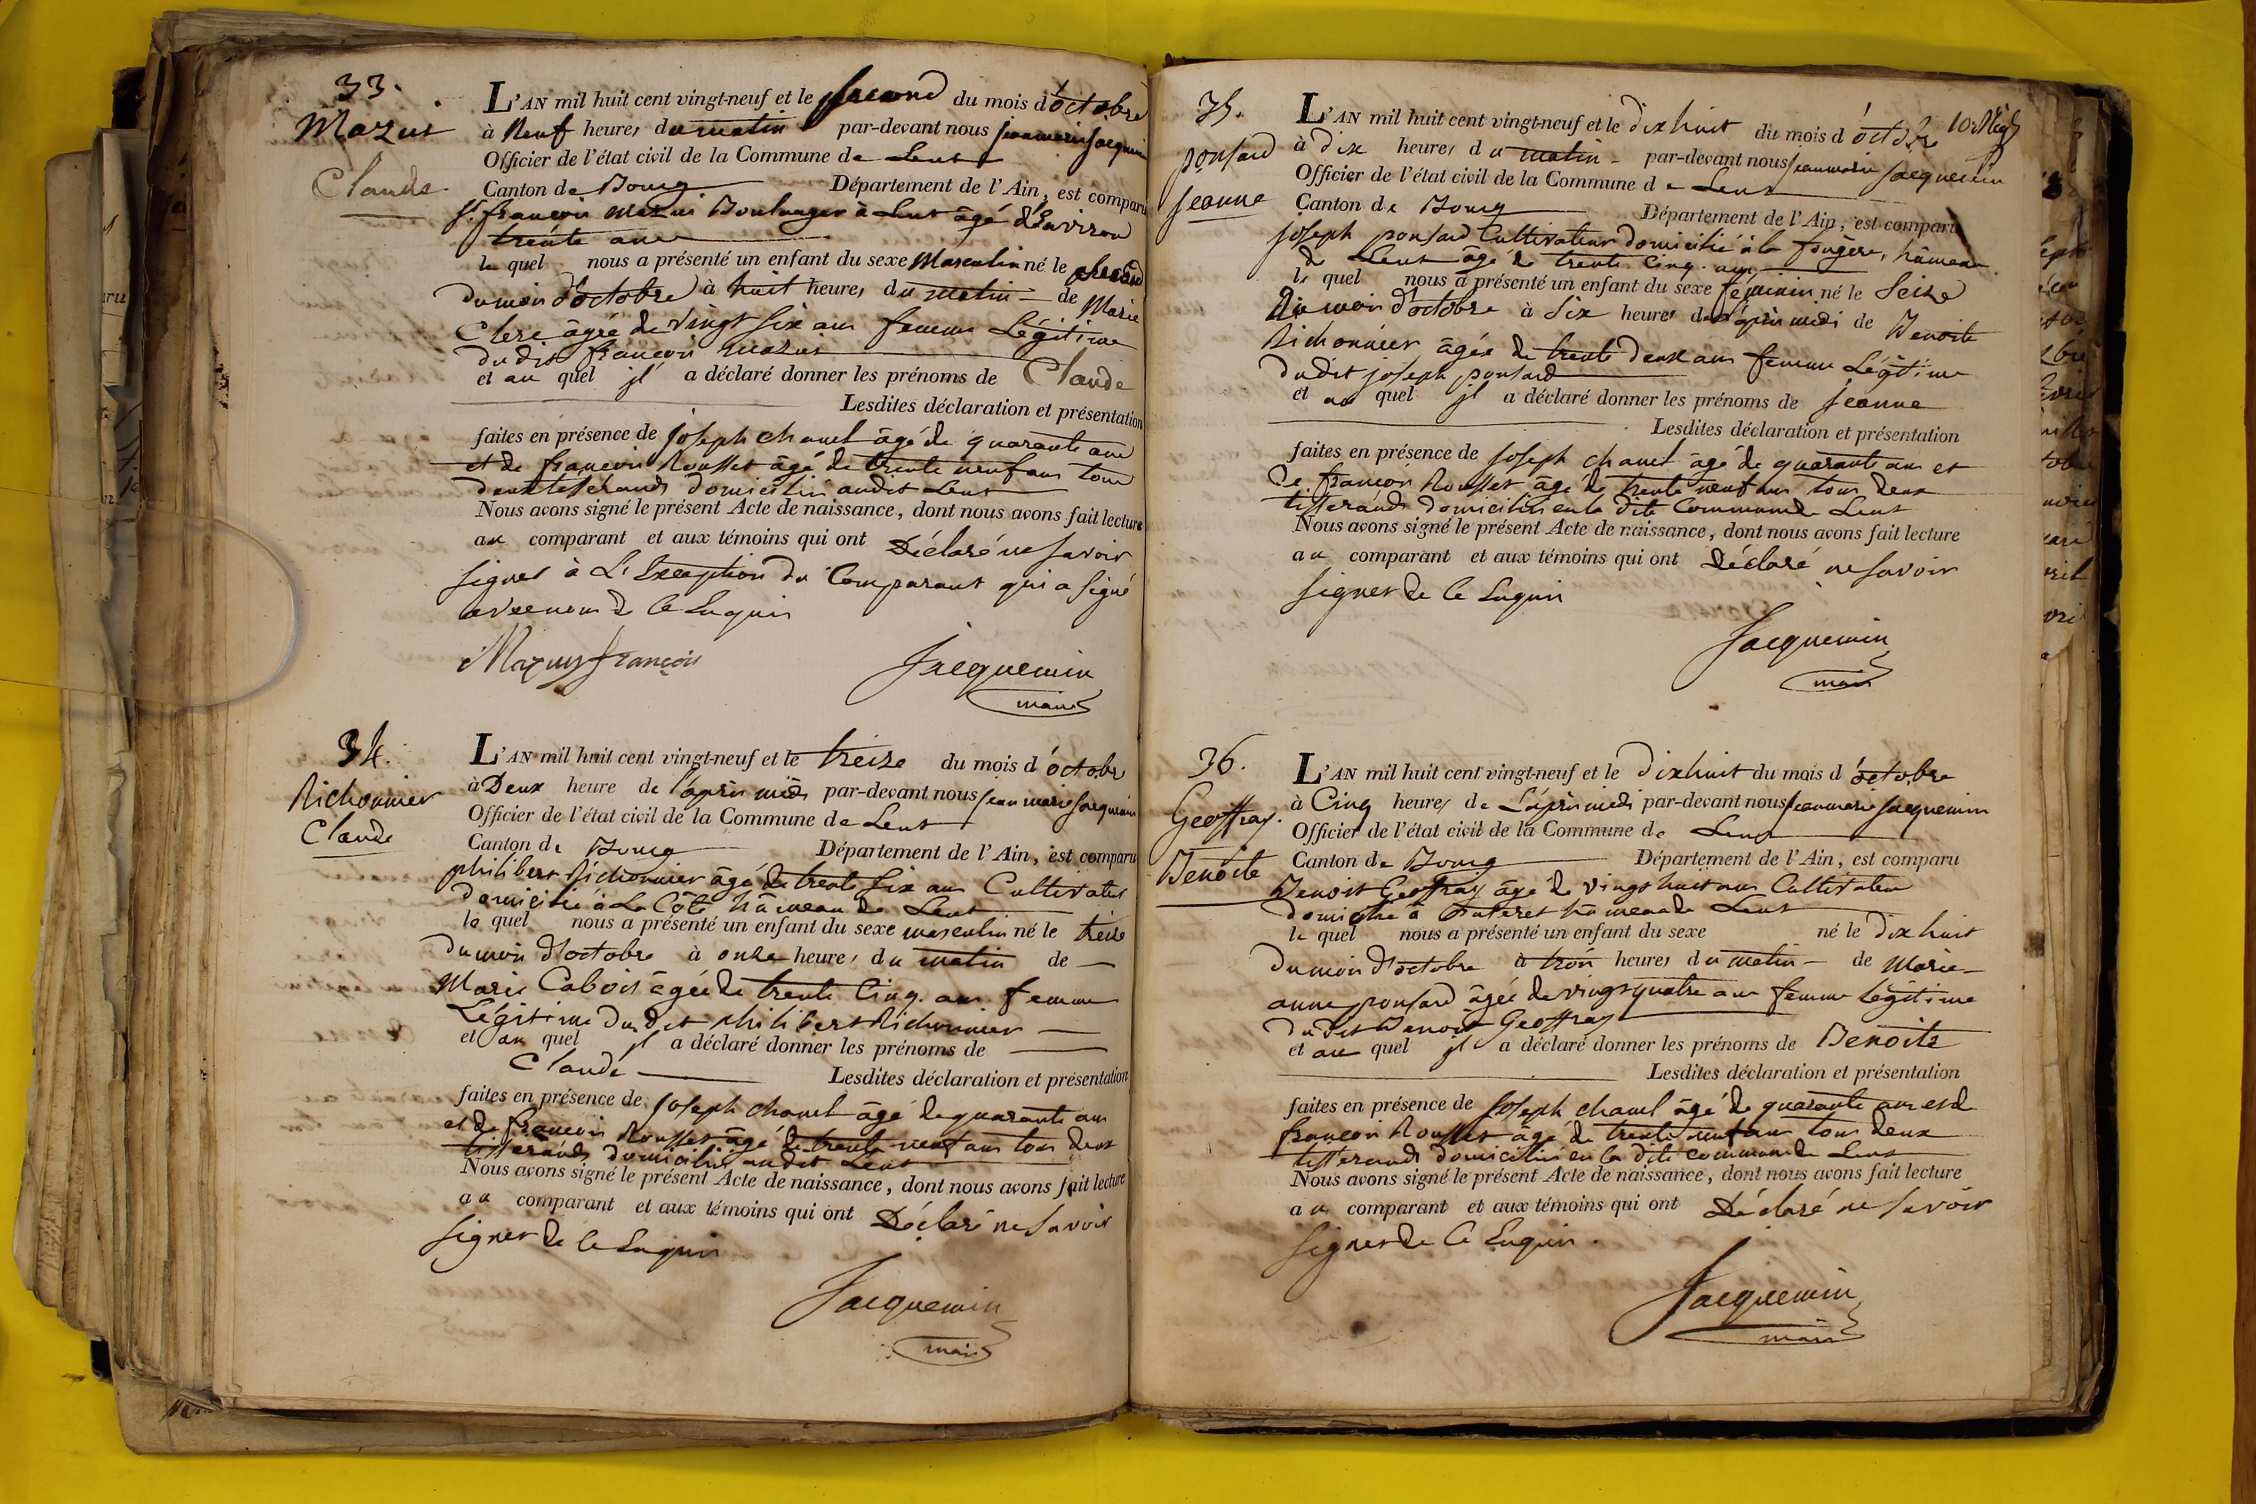 33.
Mazuit
Claude
L'AN mil huit cent vingt-neuf et le second du mois d'octobre
à Neuf heures du matin par-devant nous jeanmarie jacquemin
Officier de l'état civil de la Commune de Lent
Canton de Bourg Département de l'Ain, est comparu
St. françois mazui Boulanger à Lent âgé d'Environ
trente ans
le quel nous a présenté un enfant du sexe Masculin né le second
du mois d'octobre à huit heures du matin de Marie
Clerc âgée de vingt six ans femme Légitime
du dit françois mazuit
et au quel jl a déclaré donner les prénoms de Claude
Lesdites déclaration et présentation
faites en présence de joseph chanel âgé de quarante ans
et de françois Rousset âgé de trente neuf ans tous
deux tisserands domiciliés audit Lent
Nous avons signé le présent Acte de naissance, dont nous avons fait lecture
au comparant et aux témoins qui ont Déclaré ne savoir
signer à L'Exception du Comparant qui a signé
avec nous de ce Enquis
Mazuy françois Jacquemin
maire
34.
Richonnier
Claude
L'AN mil huit cent vingt-neuf et le treize du mois d'octobre
à Deux heure de l'après midi par-devant nous jean marie jacquemin
Officier de l'état civil de la Commune de Lent
Canton de Bourg Département de l'Ain, est comparu
philibert Richonnier âgé de trente six ans Cultivateur
domicilié à La Côte hâmeau de Lent
le quel nous a présenté un enfant du sexe masculin né le treize
du mois d'octobre à onze heures du matin de
Marie Cabois âgée de trente Cinq ans femme
Légitime du dit philibert Richonnier
et au quel jl a déclaré donner les prénoms de
Claude Lesdites déclaration et présentation
faites en présence de joseph chanel âgé de quarante ans
et de françois Rousset âgé de trente neuf ans tous deux
tisserands domiciliés audit Lent
Nous avons signé le présent Acte de naissance, dont nous avons fait lecture
au comparant et aux témoins qui ont Déclaré ne savoir
signer de ce Enquis
Jacquemin
maire
35.
ponsard
jeanne
L'AN mil huit cent vingt-neuf et le dix huit du mois d'octobre
à dix heures du matin par-devant nous jeanmarie jacquemin
Officier de l'état civil de la Commune de Lent
Canton de Bourg Département de l'Ain, est comparu
joseph ponsard Cultivateur domicilié à la fougère, hâmeau
de Lent âgé de trente cinq ans
le quel nous a présenté un enfant du sexe féminin né le Seize
Du mois d'octobre à Six heures de l'après midi de Benoite
Richonnier âgée de trente deux ans femme Légitime
dudit joseph ponsard
et au quel jl a déclaré donner les prénoms de jeanne
Lesdites déclaration et présentation
faites en présence de joseph chanel âgé de quarante ans et
De françois Rousset âgé de trente neuf ans tous deux
tisserands domiciliés en la dite Commune de Lent
Nous avons signé le présent Acte de naissance, dont nous avons fait lecture
au comparant et aux témoins qui ont Déclaré ne savoir
signer de ce Enquis
Jacquemin
maire
36.
Geoffray.
Benoite
L'AN mil huit cent vingt-neuf et le dixhuit du mois d'octobre
à Cinq heures de L'après midi par-devant nous jeanmarie jacquemin
Officier de l'état civil de la Commune de Lent
Canton de Bourg Département de l'Ain, est comparu
Benoit Geoffray âgé de vingt huit ans Cultivateur
domicilié à hâmeau de Lent
le quel nous a présenté un enfant du sexe né le dix huit
du mois d'octobre à trois heures du matin de Marie
anne ponsard âgée de vingt quatre ans femme Légitime
du dit Benoit Geoffray
et au quel jl a déclaré donner les prénoms de Benoite
Lesdites déclaration et présentation
faites en présence de joseph chanel âgé de quarante ans et de
françois Rousset âgé de trente neuf ans tous deux
tisserands domiciliés en la dite commune de Lent
Nous avons signé le présent Acte de naissance, dont nous avons fait lecture
au comparant et aux témoins qui ont Déclaré ne savoir
signer de Ce Enquis.
Jacquemin
maire